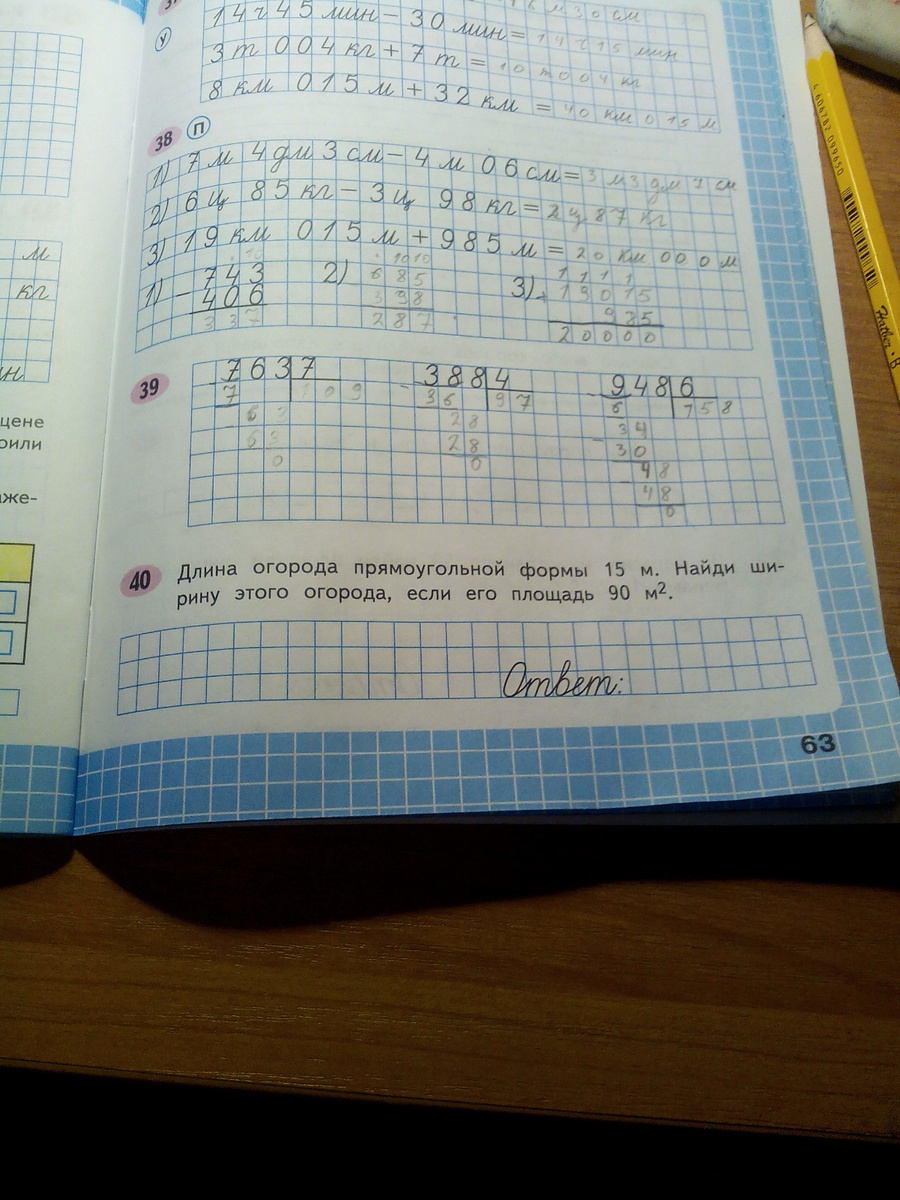 м 30 см
14 ч 45 мин - 30 мин = 14 ч 15 мин
У
3 т 004 кг + 7 т = 10 т 004 кг
8 км 015 м + 32 км = 40 км 015 м
38 П
1) 7 м 4 дм 3 см - 4 м 06 см = 3 м 3 дм 7 см
2) 6 ц 85 кг - 3 ц 98 кг = 2 ц 87 кг
3) 19 км 015 м + 985 м = 20 км 000 м
1) - 743
406
337
2) 10 10
- 685
398
287
3) 1 1 1 1
+ 19015
985
20000
39
763 7
7 109
63
63
0
388 4
36 97
28
28
0
948 6
6 158
34
30
48
48
0
40 Длина огорода прямоугольной формы 15 м. Найди ши-
рину этого огорода, если его площадь 90 м².
Ответ:
63
м
кг
н
цене
оили
аже-
4 606782 099650